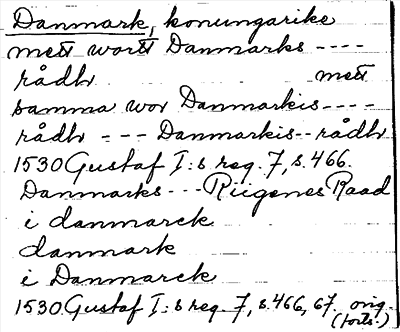 Danmark, konungarike
mett wortt Danmarks ----
rådh mett
samma wor Danmarkis----
rådh --- Danmarkis--rådh
1530 Gustaf I:s reg. 7, s. 466.
Danmarks --- Riigenes Raad
i danmarck
danmark
i Danmarck
1530 Gustaf I:s reg. 7, s. 466, 67. orig.
(forts.)